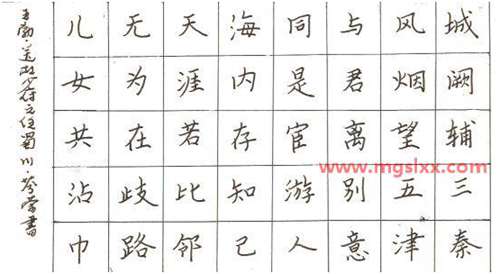 城阙辅三秦
风烟望五津
与君离别意
同是宦游人
海内存知己
天涯若比邻
无为在歧路
儿女共沾巾
王勃·送杜少府之任蜀川·書
www.mgslxx.com